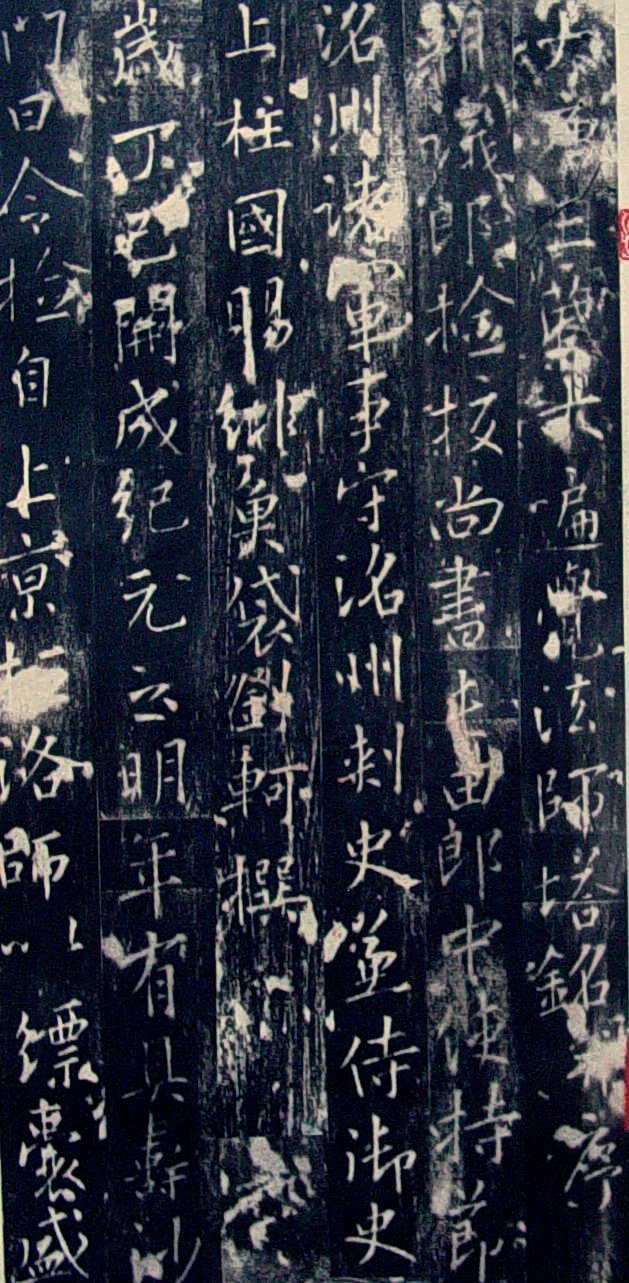 大唐三藏大遍覺法師塔銘并序
朝議郎檢挍尚書屯田郎中使持節
洺州諸軍事守洺州刺史兼侍御史
上柱國賜緋魚袋劉軻撰
歲丁巳開成紀元之明年有具壽沙
門曰令撿自上京抵洛師以縹囊盛